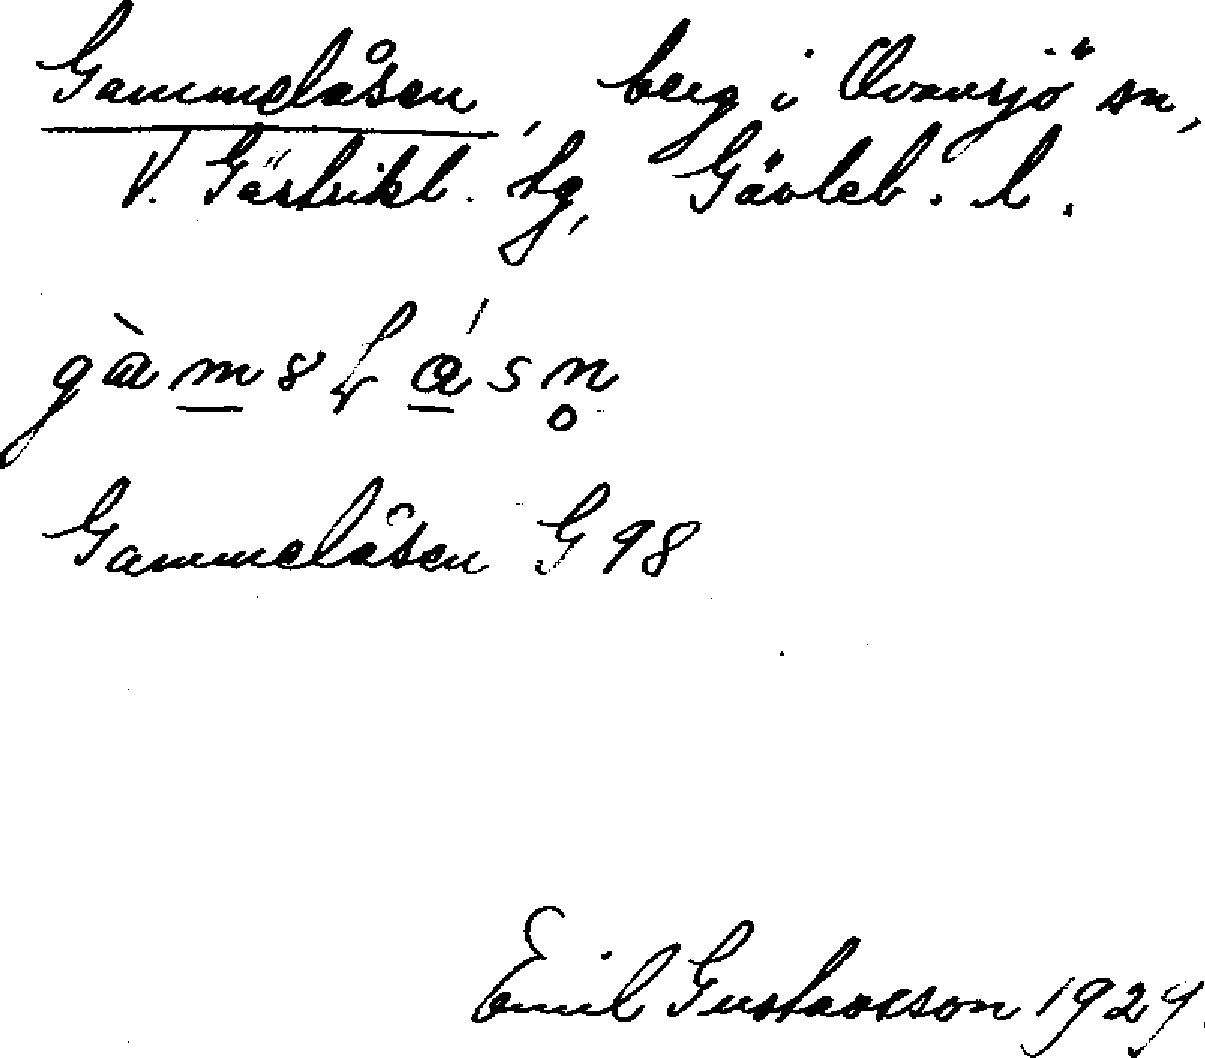 Gammelåsen, berg i Ovansjö sn,
V. Gästrikl. tg, Gävleb. l.
Gammelåsen G 98
Emil Gustavsson 1929